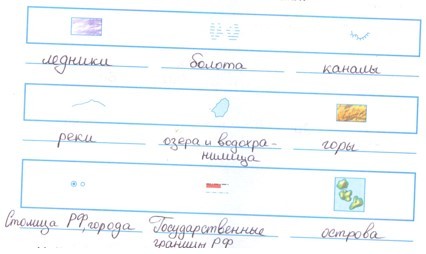 ледники болота каналы
реки озёра и водохра-
нилища горы
Столица РФ, города Государственные
границы РФ острова